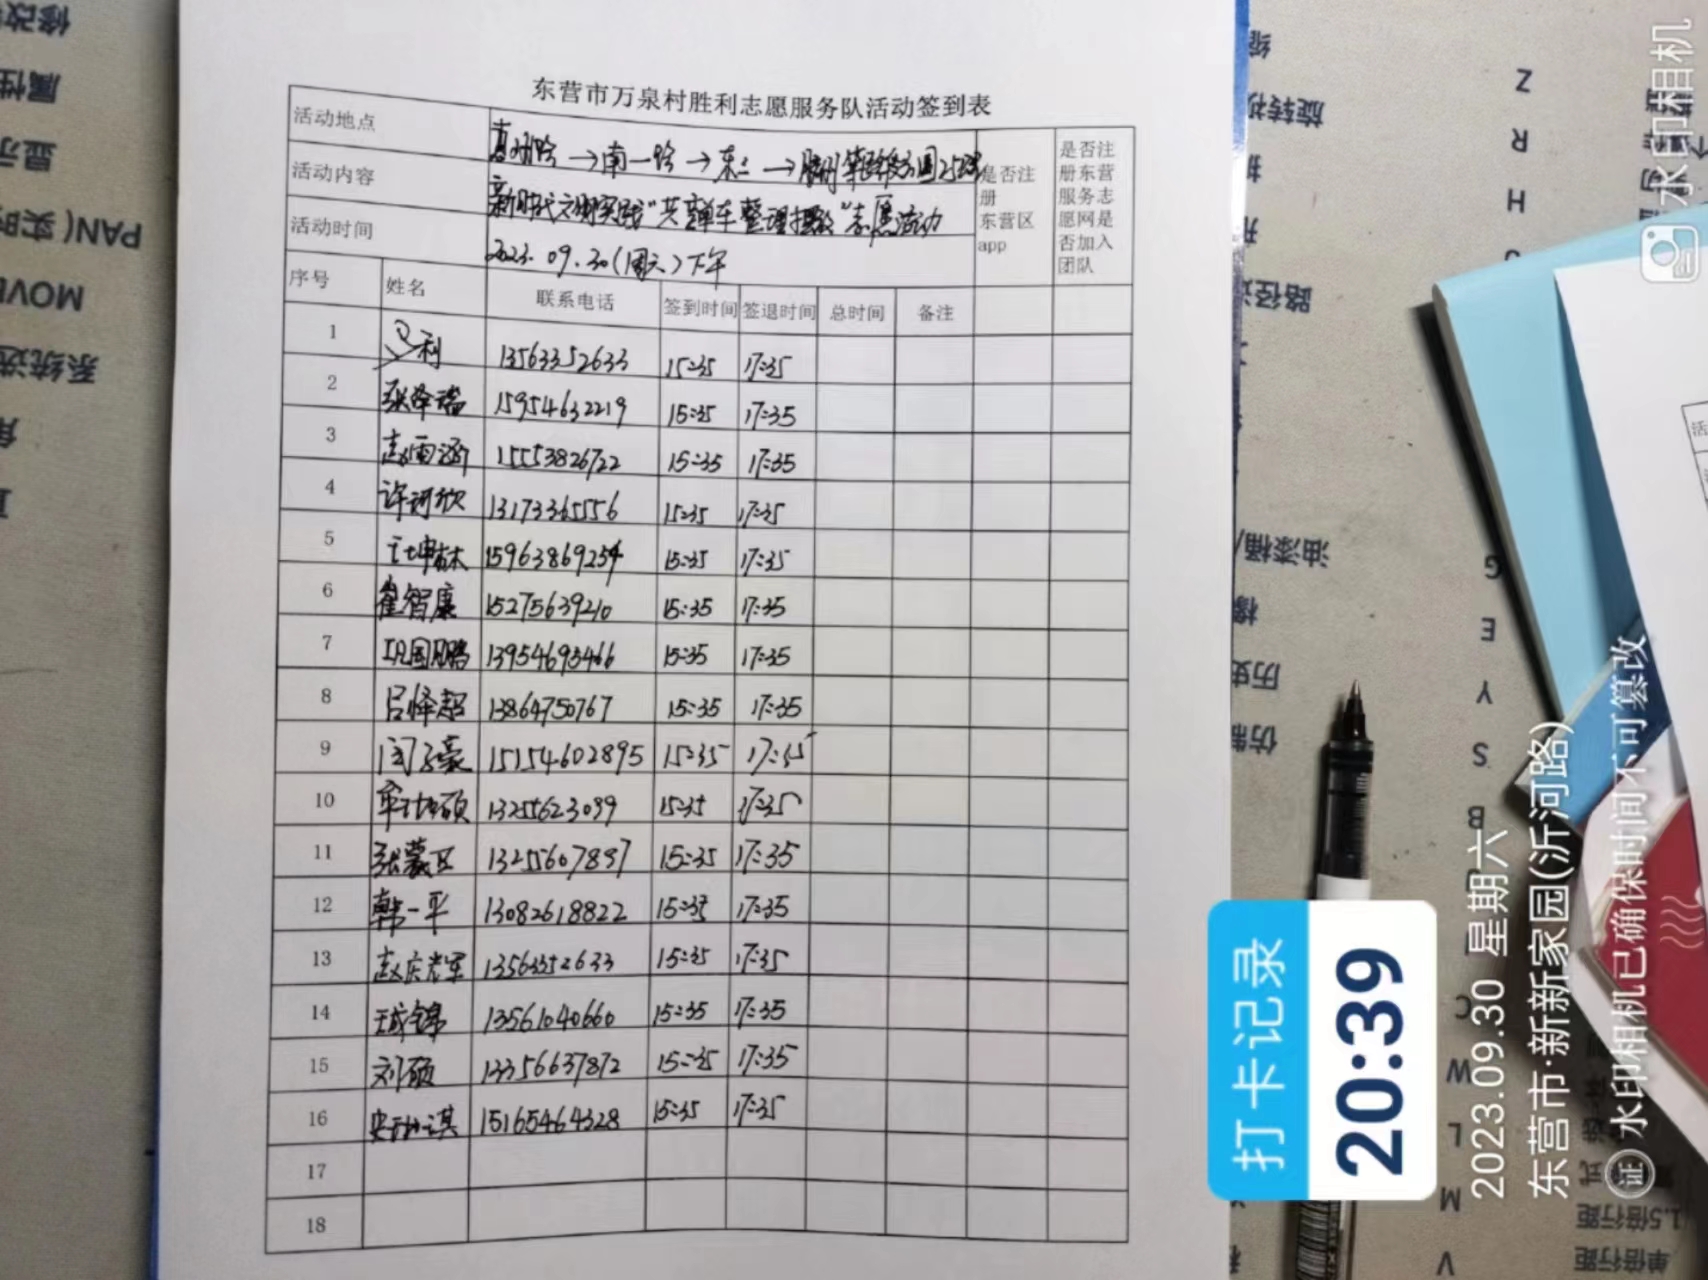 东营市万泉村胜利志愿服务队活动签到表
活动地点 →南一路→东二→胜利
活动内容 新时代文明实践"共享单车整理摆放"志愿活动
活动时间 2023.09.30(周六)下午
是否注册东营区app
是否注册东营服务志愿网是否加入团队
序号 姓名 联系电话 签到时间 签退时间 总时间 备注
1 13563352633 15:35 17:35
2 张泽瑞 15954632219 15:35 17:35
3 赵雨涵 15553826722 15:35 17:35
4 许珂欣 13173365556 15:35 17:35
5 15963869254 15:35 17:35
6 崔智康 15275639210 15:35 17:35
7 巩国鹏 13954695466 15:35 17:35
8 吕怿超 13864750767 15:35 17:35
9 闫子豪 15154602895 15:35 17:35
10 13255623099 15:35 17:35
11 13255607897 15:35 17:35
12 韩一平 13082618822 15:35 17:35
13 13563352633 15:35 17:35
14 13561040660 15:35 17:35
15 刘硕 13356637872 15:35 17:35
16 15165464328 15:35 17:35
17
18
打卡记录
20:39
2023.09.30 星期六
东营市·新新家园(沂河路)
证 水印相机已确保时间不可篡改
水印相机
修改
属性
显示
PAN(实时
MOVE
系统选
旋转
路径
油漆桶/
历史
仿制
Z
R
H
G
E
Y
S
B
C
W
L
M
V
1.5倍行距
单倍行距